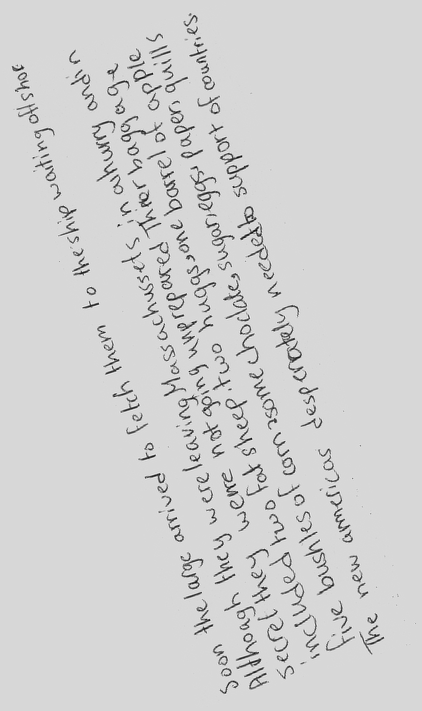 Soon the large arrived to fetch them to the ship waiting off shore
Although they were leaving Massachussets in a hurry and in
secret they were not going unprepared Their baggage
included two fat sheep, two huggs, one barrel of apple
five bushles of corn some choclates, sugar, eggs, paper, quills
The new americas desperately needed to support of countries.